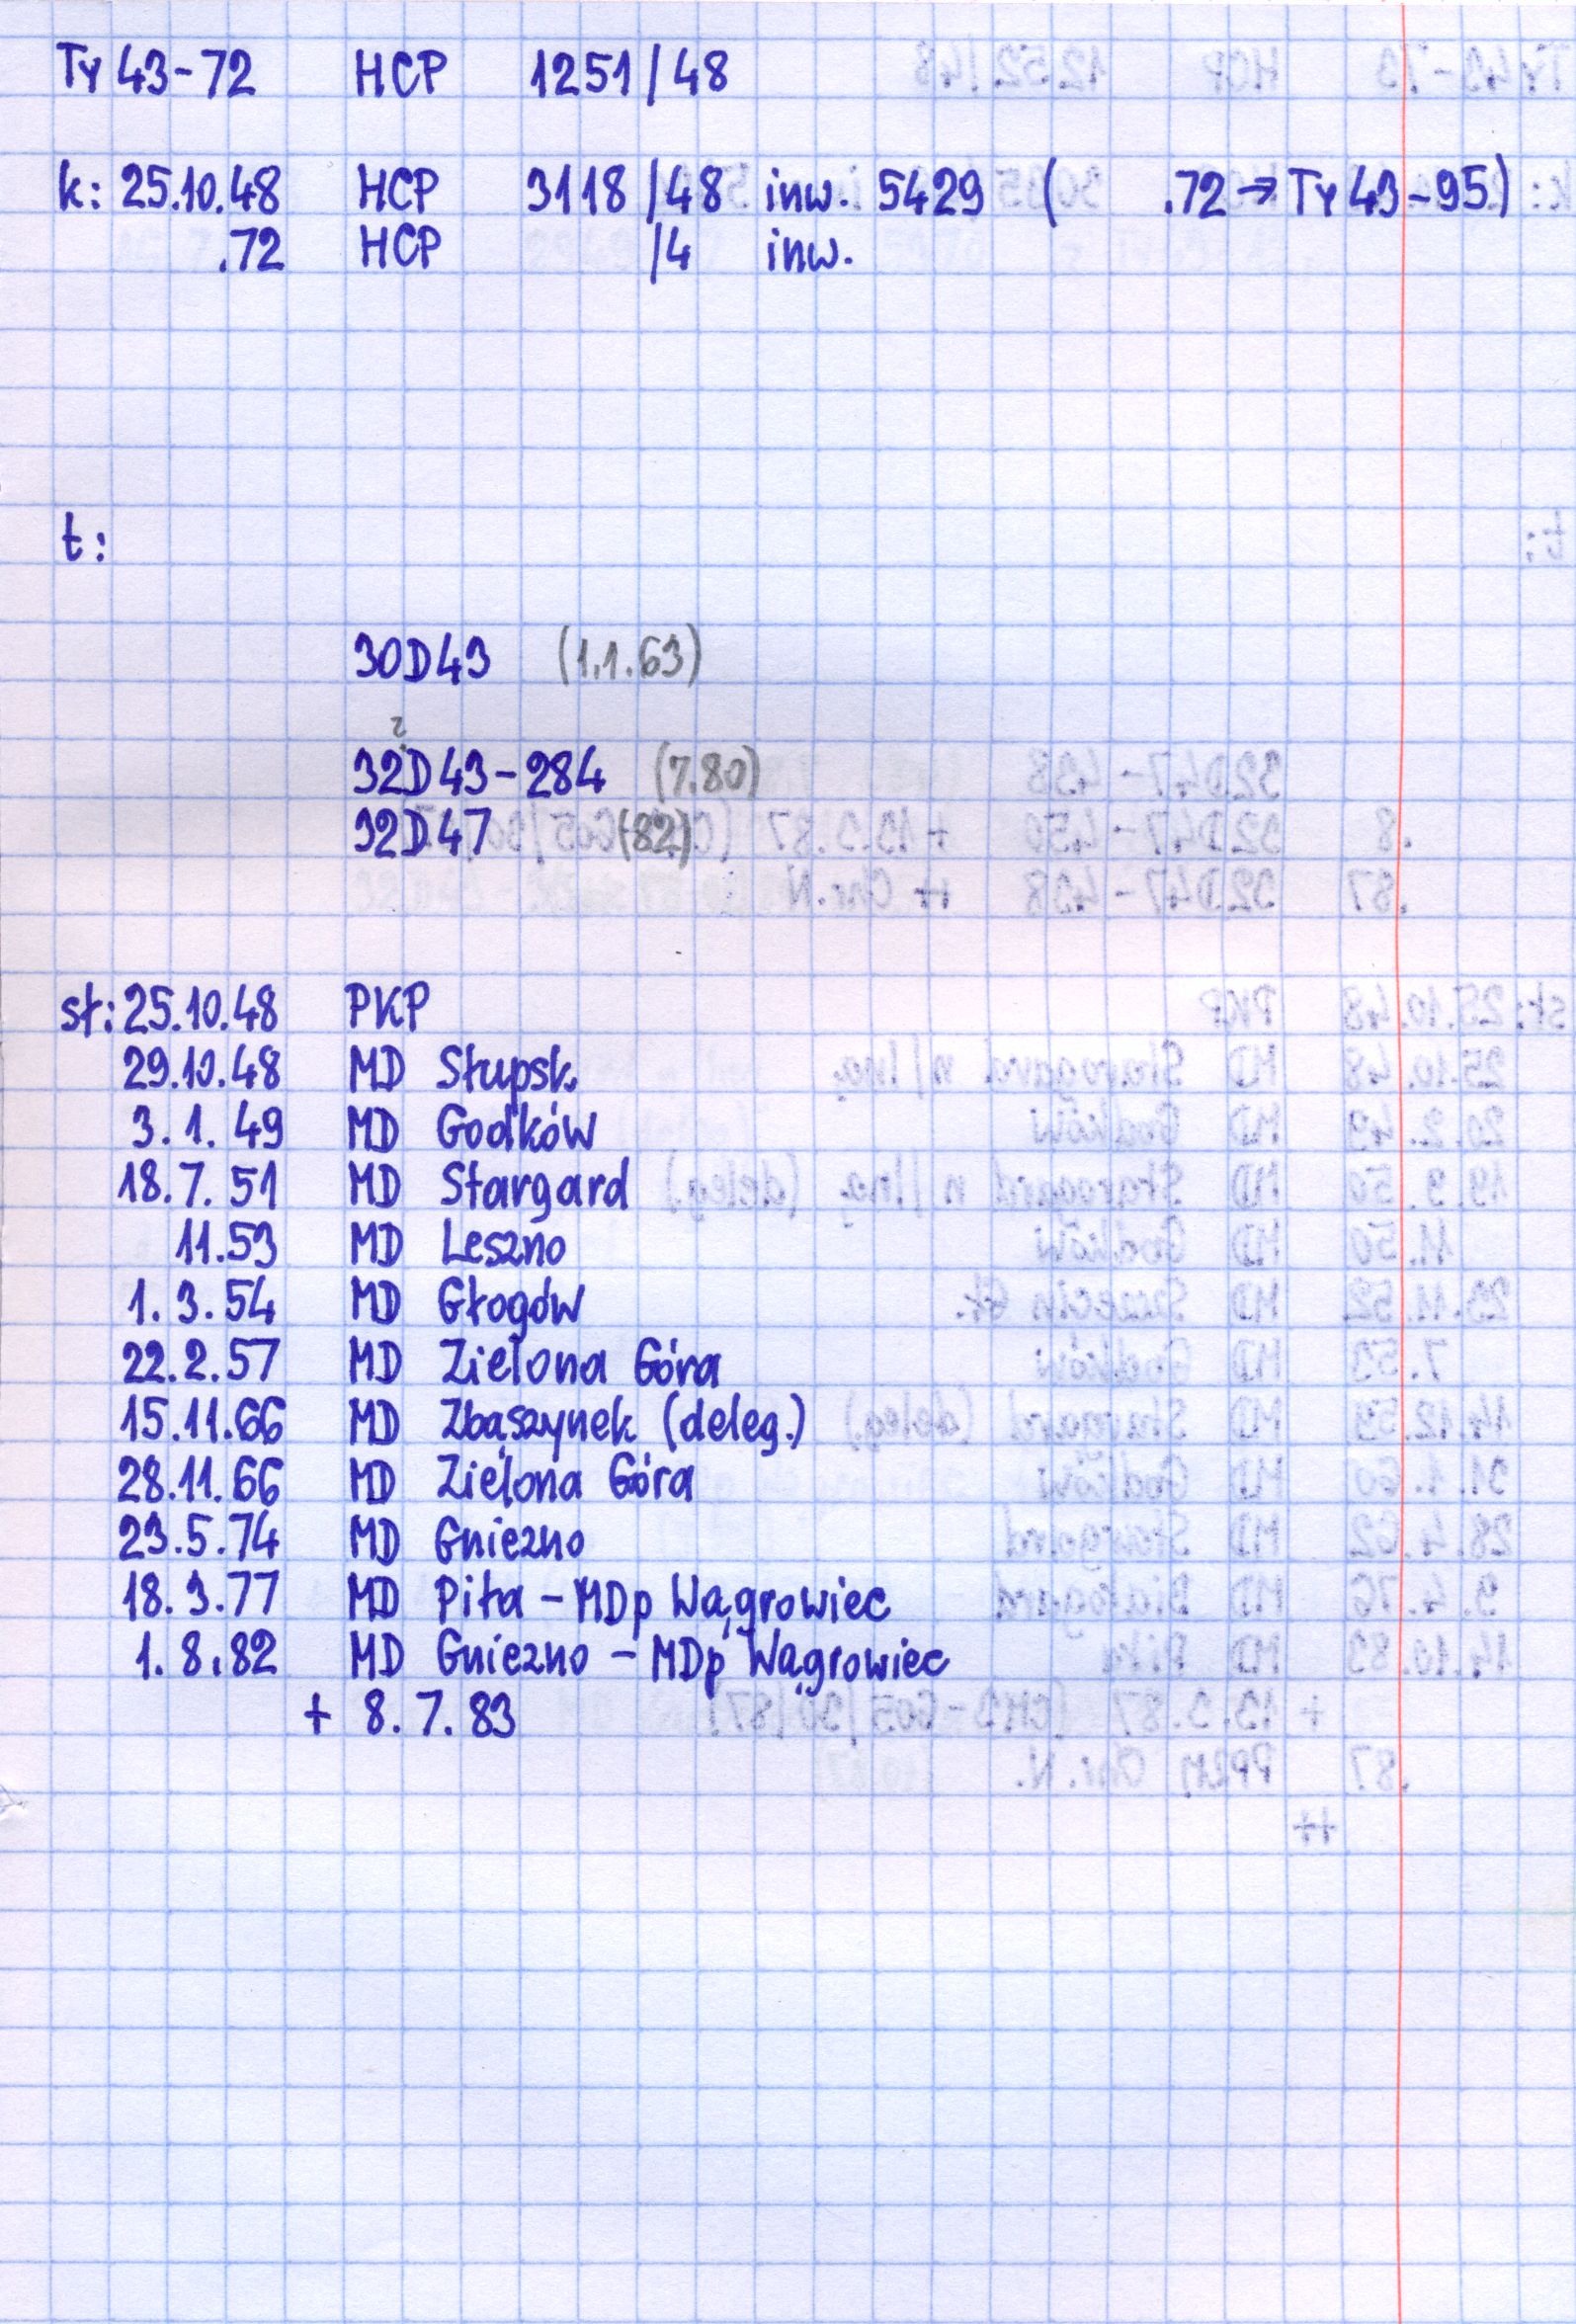 Ty 43-72 HCP 1251/48
k: 25.10.48 HCP 3118/48 inw. 5429 ( .72 → Ty 43-95)
.72 HCP /4 inw.
t:
30D43 (1.1.63)
?
32D43-284 (7.80)
32D47 (82)
st: 25.10.48 PKP
29.10.48 MD Słupsk
3.1.49 MD Godków
18.7.51 MD Stargard
11.53 MD Leszno
1.3.54 MD Głogów
22.2.57 MD Zielona Góra
15.11.66 MD Zbąszynek (deleg.)
28.11.66 MD Zielona Góra
23.5.74 MD Gniezno
18.3.77 MD Piła - MDp Wągrowiec
1.8.82 MD Gniezno - MDp Wągrowiec
+ 8.7.83